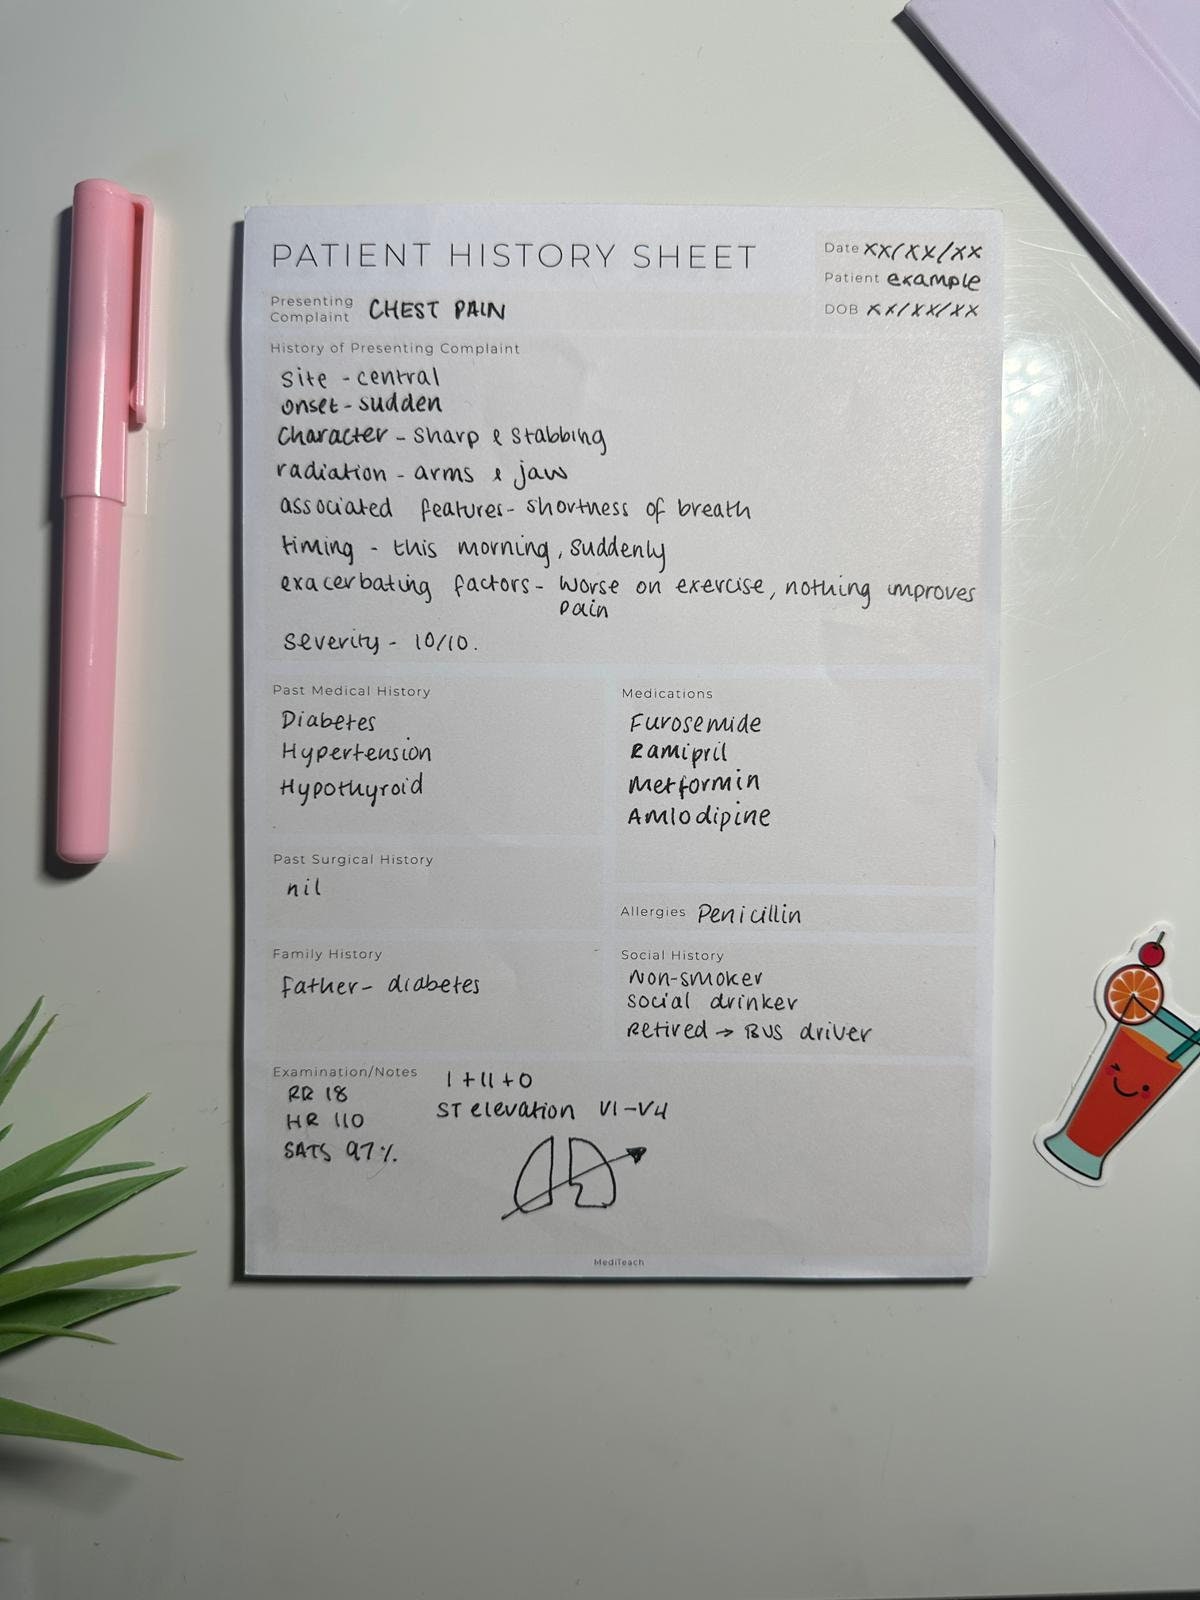 PATIENT HISTORY SHEET
Date xx/xx/xx
Patient example
DOB xx/xx/xx
Presenting Complaint CHEST PAIN
History of Presenting Complaint
site - central
onset - sudden
Character - sharp & stabbing
radiation - arms & jaw
associated features - shortness of breath
timing - this morning, suddenly
exacerbating factors - worse on exercise, nothing improves
pain
severity - 10/10.
Past Medical History
Diabetes
Hypertension
Hypothyroid
Medications
Furosemide
Ramipril
Metformin
Amlodipine
Past Surgical History
nil
Allergies Penicillin
Family History
father - diabetes
Social History
Non-smoker
social drinker
Retired → Bus driver
Examination/Notes
RR 18
HR 110
SATS 97%.
I + II + O
ST elevation V1-V4
MediTeach